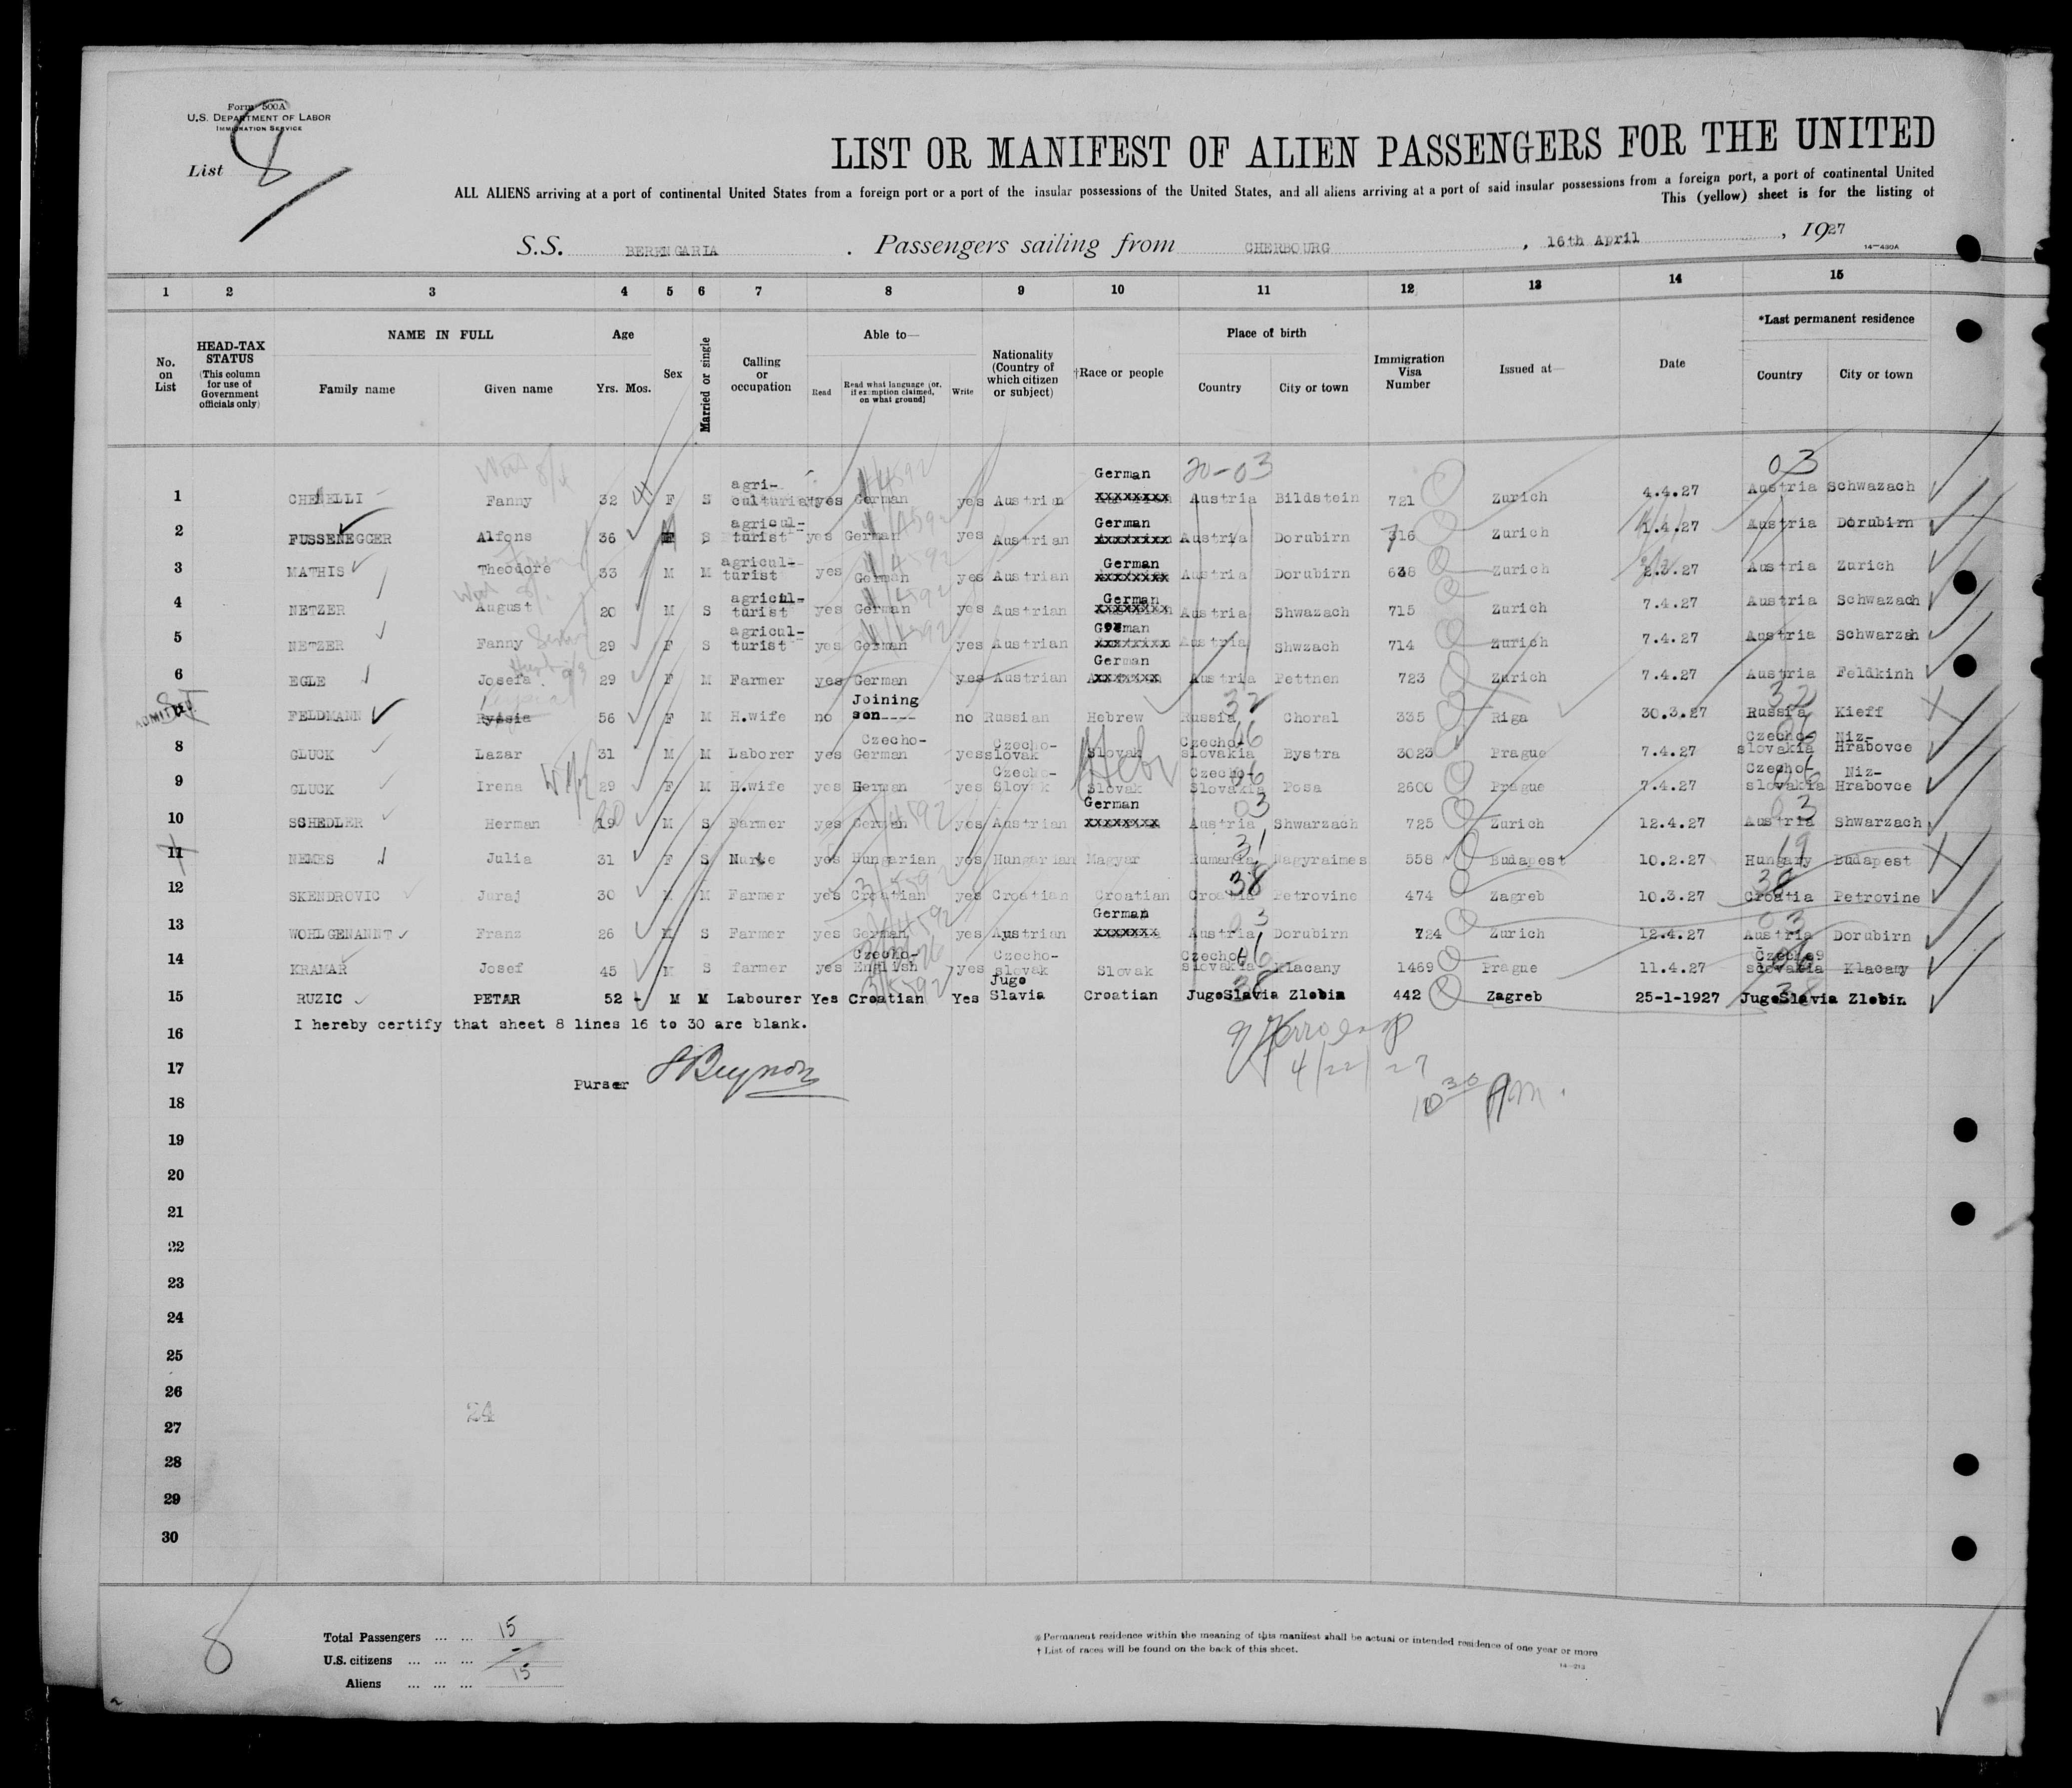 Form 500A
U.S. DEPARTMENT OF LABOR
IMMIGRATION SERVICE
List 8
LIST OR MANIFEST OF ALIEN PASSENGERS FOR THE UNITED
ALL ALIENS arriving at a port of continental United States from a foreign port or a port of the insular possessions of the United States, and all aliens arriving at a port of said insular possessions from a foreign port, a port of continental United
This (yellow) sheet is for the listing of
S.S. BERENGARIA . Passengers sailing from CHERBOURG , 16th April , 1927
14-430A
1 2 3 4 5 6 7 8 9 10 11 12 13 14 15
No. on List HEAD-TAX STATUS (This column for use of Government officials only) NAME IN FULL Family name Given name Age Yrs. Mos. Sex Married or single Calling or occupation Able to— Read Read what language [or, if exemption claimed, on what ground] Write Nationality (Country of which citizen or subject) †Race or people Place of birth Country City or town Immigration Visa Number Issued at— Date *Last permanent residence Country City or town
20-03 03
1 CHENELLI Fanny 32 F S agri- culturia yes German yes Austrian German xxxxxxxx Austria Bildstein 721 Zurich 4.4.27 Austria Schwazach
2 FUSSENEGGER Alfons 36 M S agricul- turist yes German yes Austrian German xxxxxxxx Austria Dorubirn 716 Zurich 1.4.27 Austria Dorubirn
3 MATHIS Theodore 33 M M agricul- turist yes German yes Austrian German xxxxxxxx Austria Dorubirn 638 Zurich 2.3.27 Austria Zurich
4 NETZER August 20 M S agricul- turist yes German yes Austrian German xxxxxxxx Austria Shwazach 715 Zurich 7.4.27 Austria Schwazach
5 NETZER Fanny 29 F S agricul- turist yes German yes Austrian German xxxxxxxx Austria Shwzach 714 Zurich 7.4.27 Austria Schwarzah
6 EGLE Josefa 29 F M Farmer yes German yes Austrian German xxxxxxx Austria Fettnen 723 Zurich 7.4.27 Austria Feldkinh
ADMITTED FELDMANN 56 F M H.wife no Joining son---- no Russian Hebrew Russia 32 Choral 335 Riga 30.3.27 Russia 32 Kieff
8 GLUCK Lazar 31 M M Laborer yes Czecho- German yes Czecho- slovak Slovak Hebr Czecho- slovakia Bystra 3023 Prague 7.4.27 Czecho- slovakia Niz- Hrabovce
9 GLUCK Irena 29 F M H.wife yes German yes Czecho- Slovak Slovak Czecho- Slovakia Posa 2600 Prague 7.4.27 Czecho- slovakia Niz- Hrabovce
10 SCHEDLER Herman 19 M S Farmer yes German yes Austrian German xxxxxxxx Austria 03 Shwarzach 725 Zurich 12.4.27 Austria 03 Shwarzach
11 NEMES Julia 31 F S Nurse yes Hungarian yes Hungarian Magyar Rumania 31 Nagyraimes 558 Budapest 10.2.27 Hungary 19 Budapest
12 SKENDROVIC Juraj 30 M M Farmer yes Croatian yes Croatian Croatian Croatia 38 Petrovine 474 Zagreb 10.3.27 Croatia 38 Petrovine
13 WOHLGENANNT Franz 26 M S Farmer yes German yes Austrian German xxxxxxx Austria 03 Dorubirn 724 Zurich 12.4.27 Austria 03 Dorubirn
14 KRAMAR Josef 45 M S farmer yes Czecho- English yes Czecho- slovak Slovak Czecho- slovakia Klacany 1469 Prague 11.4.27 Czecho- slovakia Klacany
15 RUZIC PETAR 52 - M M Labourer Yes Croatian Yes Jugo Slavia Croatian JugoSlavia 38 Zlobin 442 Zagreb 25-1-1927 JugoSlavia 38 Zlobin
16 I hereby certify that sheet 8 lines 16 to 30 are blank.
17 Purser
4/22/27
18 10 30 AM.
19
20
21
22
23
24
25
26
24
27
28
29
30
8
Total Passengers ... ... 15
U.S. citizens ... ... ... -
Aliens ... ... ... 15
* Permanent residence within the meaning of this manifest shall be actual or intended residence of one year or more
† List of races will be found on the back of this sheet.
14-213